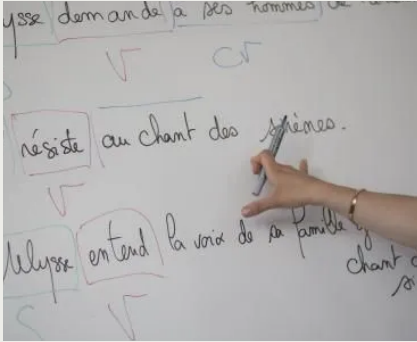 ysse demande à ses hommes de
V CV
résiste au chant des sirènes.
V
Ulysse entend la voix de sa famille
chant
S V